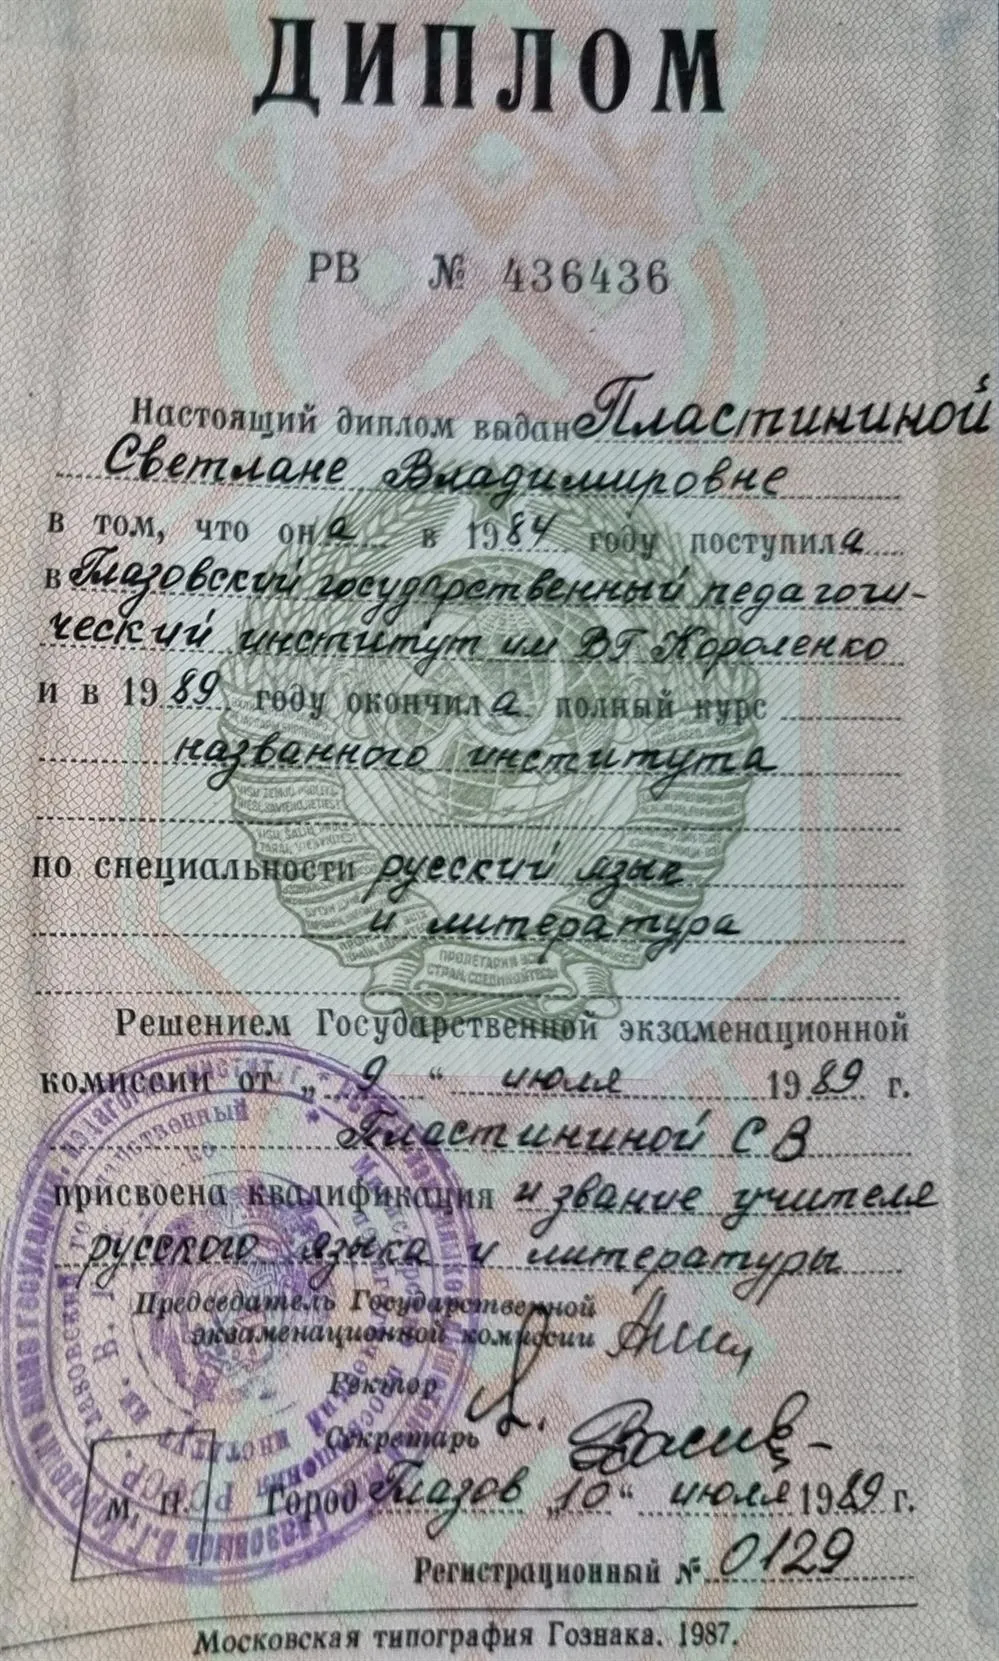 ДИПЛОМ
РВ № 436436
Настоящий диплом выдан Пластининой
Светлане Владимировне
в том, что она в 1984 году поступила
в Глазовский государственный педагоги-
ческий институт им ВГ Короленко
и в 1989 году окончила полный курс
названного института
по специальности русский язык
и литература
ПРОЛЕТАРИИ ВСЕХ
СТРАН, СОЕДИНЯЙТЕСЬ!
Решением Государственной экзаменационной
комиссии от „9“ июля 1989 г.
Пластининой С В
присвоена квалификация и звание учителя
русского языка и литературы
Председатель Государственной
экзаменационной комиссии
Ректор
Секретарь
М. П. Город Глазов „10“ июля 1989 г.
Регистрационный № 0129
Московская типография Гознака. 1987.